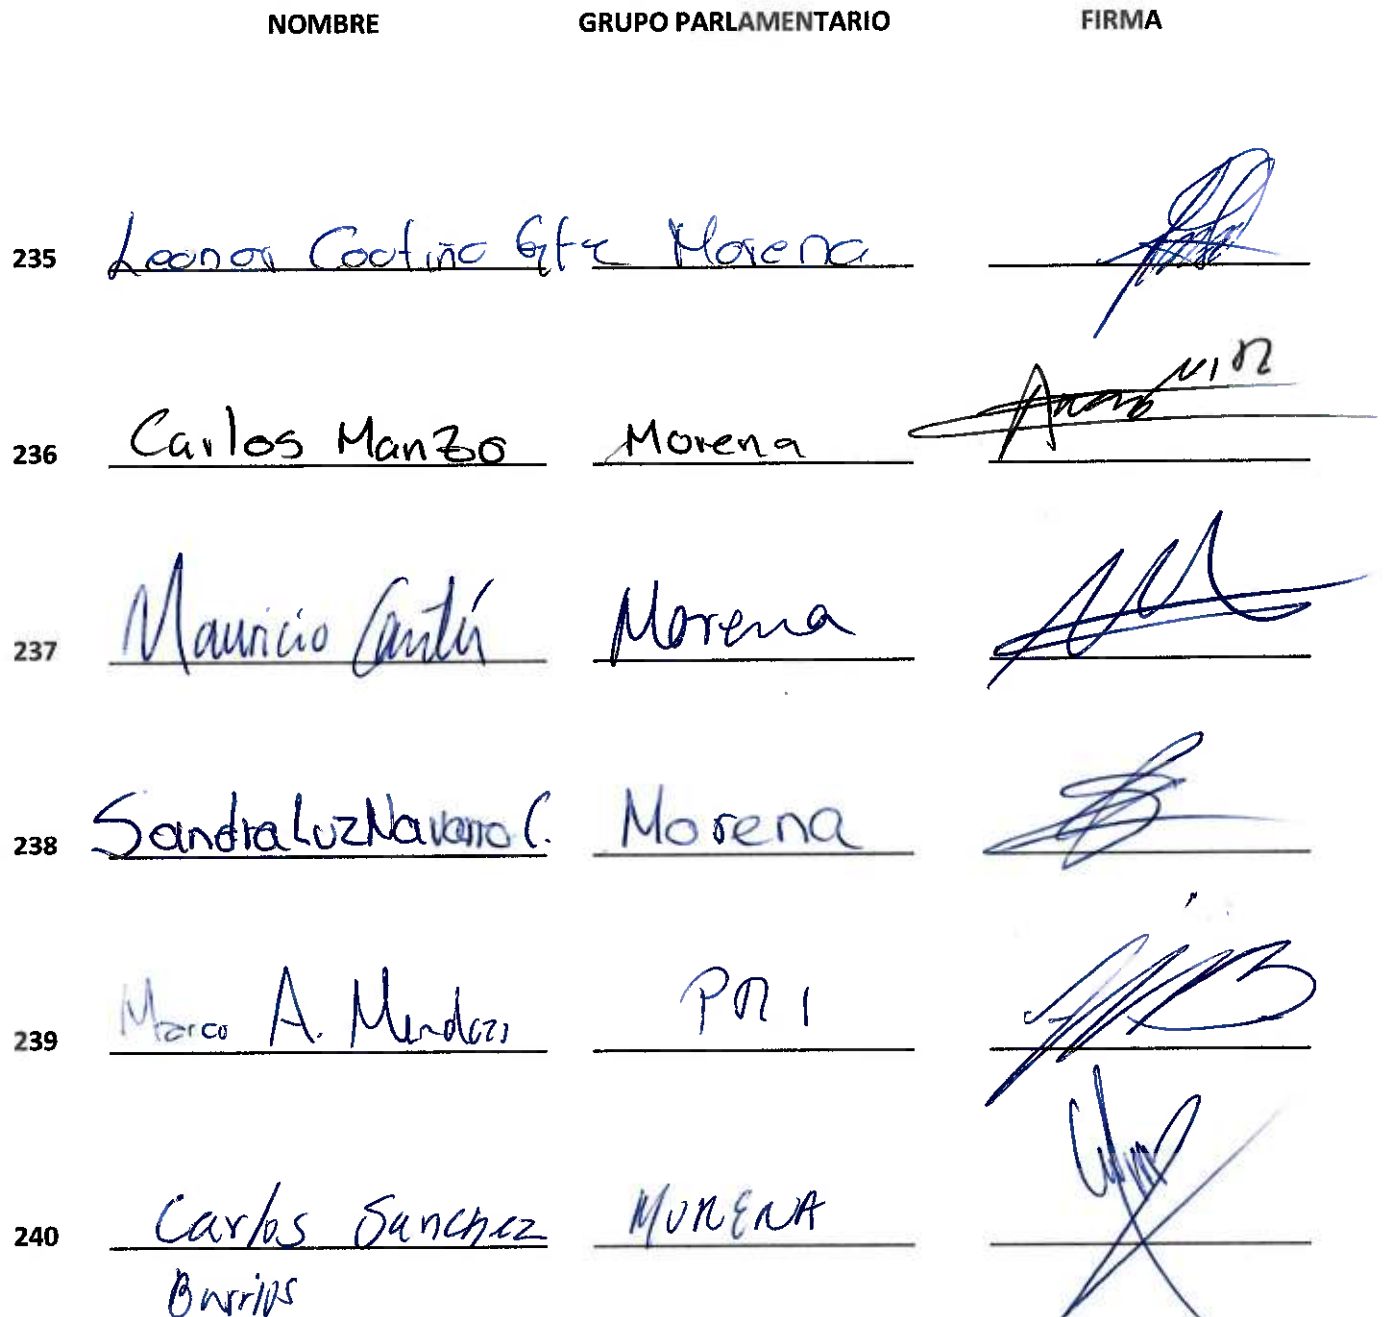 NOMBRE GRUPO PARLAMENTARIO FIRMA
235 Leonor Coutiño Gtz Morena
236 Carlos Manzo Morena
237 Mauricio Cantú Morena
238 Sandra Luz Navarro C. Morena
239 Marco A. Mendoza PRI
240 Carlos Sanchez MORENA
Barrios